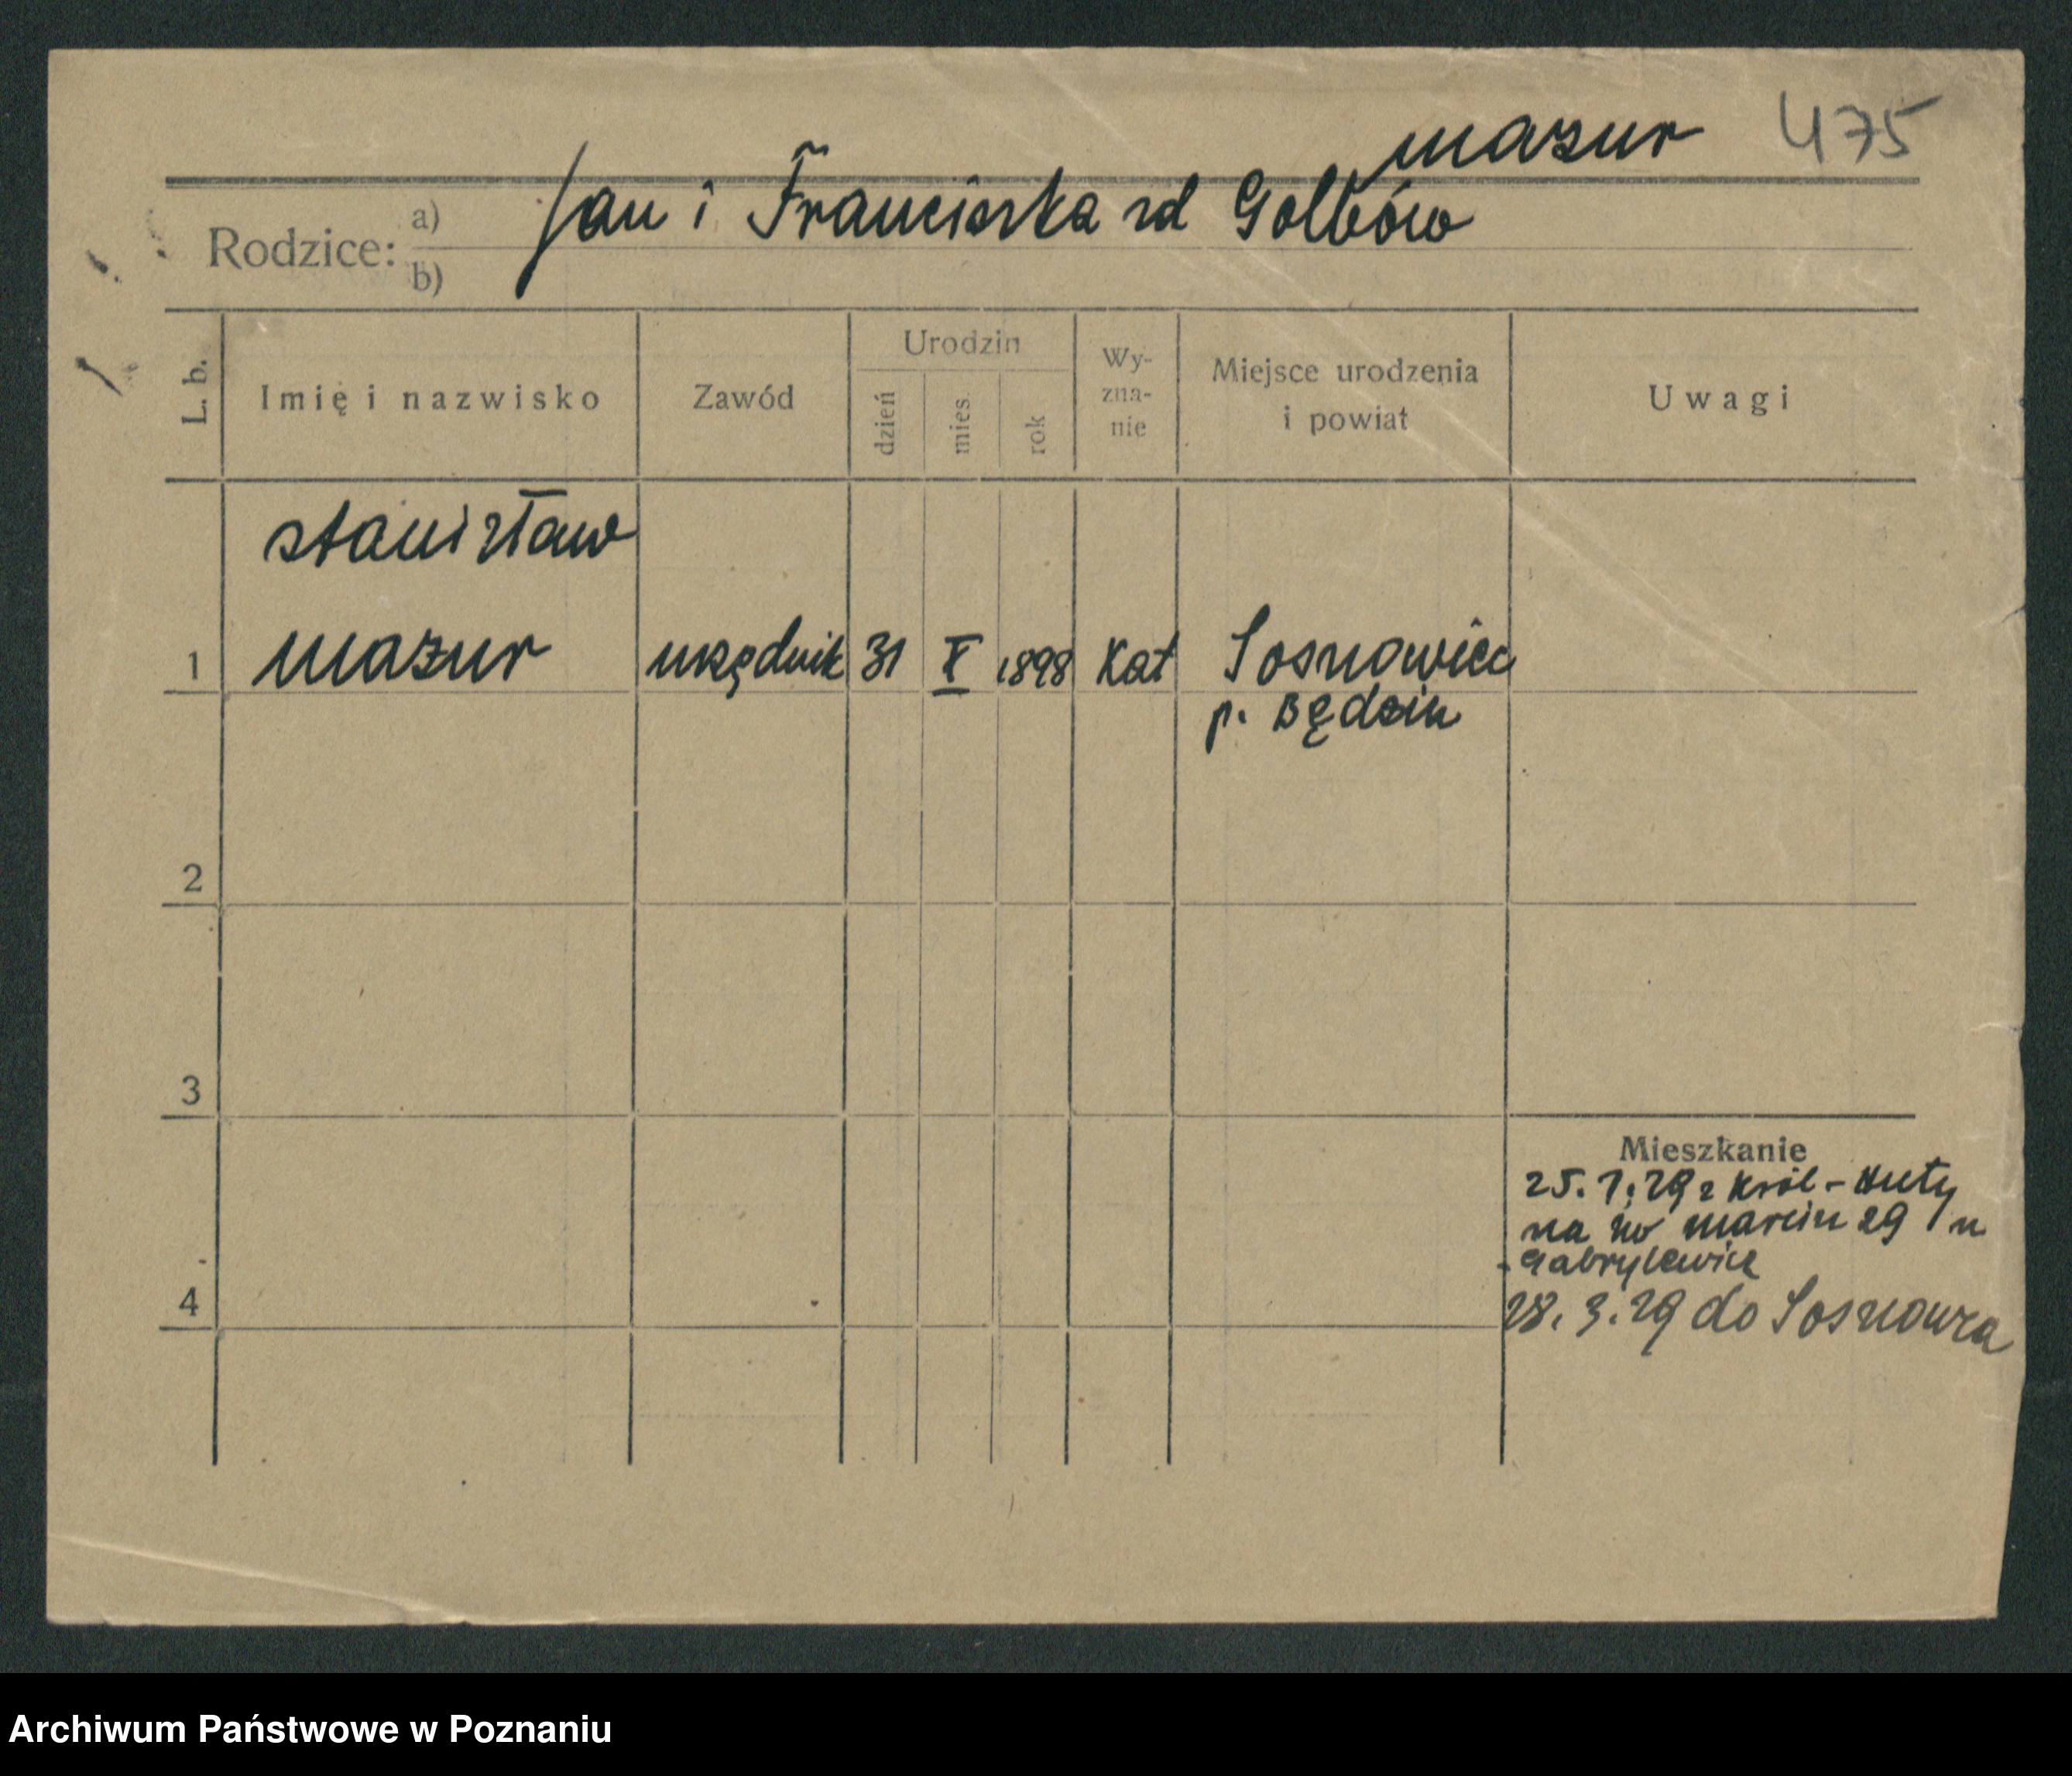 mazur 475
Jan i Franciszka zd Golbów
Rodzice: a)
b)
L. b.
Imię i nazwisko
Zawód
Urodzin
dzień
mies.
rok
Wy-
zna-
nie
Miejsce urodzenia
i powiat
Uwagi
stanisław
1 mazur urzędnik 31 X 1898 Kat Sosnowiec
p. Będzin
2
3
Mieszkanie
25. 1. 29 z Król-Huty
na św marcin 29 / u
Gabrylewicz
4
28. 3. 29 do Sosnowca
Archiwum Państwowe w Poznaniu